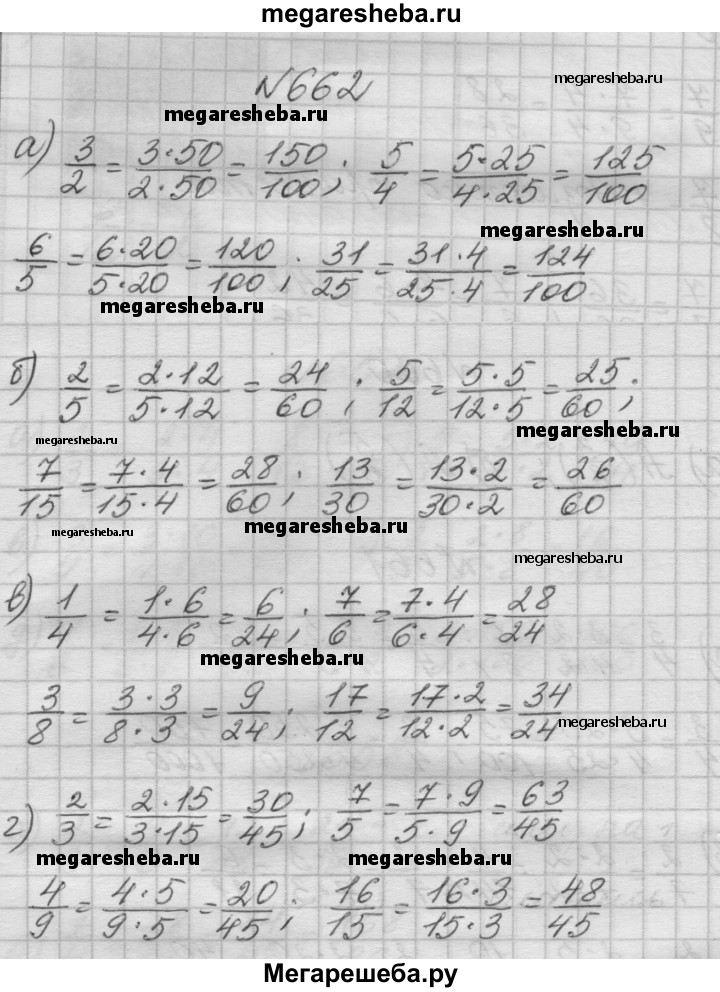 megaresheba.ru
N662
megaresheba.ru
megaresheba.ru
а) 3/2 = 3·50/2·50 = 150/100; 5/4 = 5·25/4·25 = 125/100
megaresheba.ru
6/5 = 6·20/5·20 = 120/100; 31/25 = 31·4/25·4 = 124/100
megaresheba.ru
б) 2/5 = 2·12/5·12 = 24/60; 5/12 = 5·5/12·5 = 25/60;
megaresheba.ru
megaresheba.ru
7/15 = 7·4/15·4 = 28/60; 13/30 = 13·2/30·2 = 26/60
megaresheba.ru
megaresheba.ru
megaresheba.ru
в) 1/4 = 1·6/4·6 = 6/24; 7/6 = 7·4/6·4 = 28/24
megaresheba.ru
3/8 = 3·3/8·3 = 9/24; 17/12 = 17·2/12·2 = 34/24
megaresheba.ru
г) 2/3 = 2·15/3·15 = 30/45; 7/5 = 7·9/5·9 = 63/45
megaresheba.ru megaresheba.ru
4/9 = 4·5/9·5 = 20/45; 16/15 = 16·3/15·3 = 48/45
Мегарешеба.ру